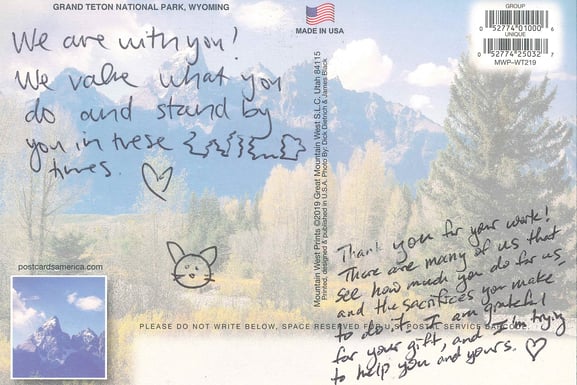 GRAND TETON NATIONAL PARK, WYOMING
MADE IN USA
GROUP
0 52774 01000 6
UNIQUE
0 52774 25032 7
MWP-WT219
We are with you!
We value what you
do and stand by
you in these
times.
Mountain West Prints ©2019 Great Mountain West S.L.C. Utah 84115
Printed, designed & published in U.S.A. Photo By: Dick Dietrich & James Black
Thank you for your work!
There are many of us that
see how much you do for us,
and the sacrifices you make
to do it. I am grateful
for your gift, and I'm trying
to help you and yours.
postcardsamerica.com
PLEASE DO NOT WRITE BELOW, SPACE RESERVED FOR U.S. POSTAL SERVICE BARCODE